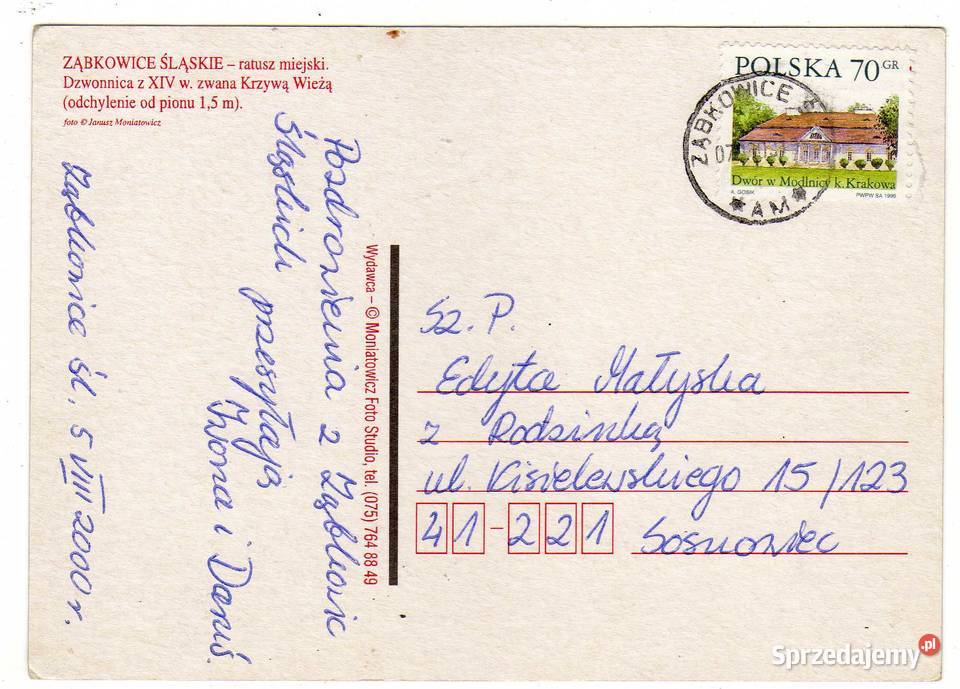 ZĄBKOWICE ŚLĄSKIE – ratusz miejski.
Dzwonnica z XIV w. zwana Krzywą Wieżą
(odchylenie od pionu 1,5 m).
foto © Janusz Moniatowicz
Pozdrowienia z Ząbkowic
Śląskich
przesyłają
Iwona i Danuś.
Ząbkowice Śl., 5 VIII 2000 r.
Wydawca – © Moniatowicz Foto Studio, tel. (075) 764 88 49
POLSKA 70 GR
Dwór w Modlnicy k. Krakowa
A. GOSIK PWPW SA 1999
ZĄBKOWICE Ś
07
*AM*
Sz. P.
Edyta Małyska
z Rodzinką
ul. Kisielewskiego 15/123
41-221 Sosnowiec
Sprzedajemy.pl